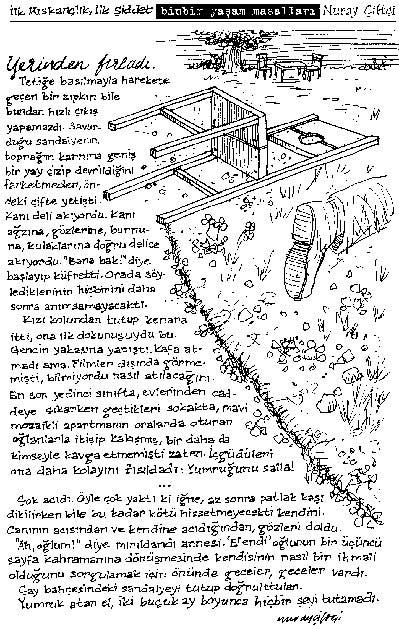 İlk Kıskançlık, İlk Şiddet binbir yaşam masalları Nuray Çiftçi
Yerinden fırladı.
Tetiğe basılmayla harekete
geçen bir zıpkın bile
bundan hızlı çıkış
yapamazdı. Savur-
duğu sandalyenin,
toprağın karnına geniş
bir yay çizip devrildiğini
farketmeden, ön-
deki çifte yetişti.
Kanı deli akıyordu. Kanı
ağzına, gözlerine, burnu-
na, kulaklarına doğru delice
akıyordu. "Bana bak!" diye
başlayıp küfretti. Orada söy-
lediklerinin hiçbirini daha
sonra anımsamayacaktı.
Kızı kolundan tutup kenara
itti, ona ilk dokunuşuydu bu.
Gencin yakasına yapıştı. Kafa at-
madı ama. Filmler dışında görme-
mişti, bilmiyordu nasıl atılacağını.
En son yedinci sınıfta, evlerinden cad-
deye çıkarken geçtikleri sokakta, mavi
mozaikli apartmanın oralarda oturan
oğlanlarla itişip kakışmış, bir daha da
kimseyle kavga etmemişti zaten. İçgüdüleri
ona daha kolayını fısıldadı: Yumruğunu salla!
...
Çok acıdı. Öyle çok yaktı ki iğne, az sonra patlak kaşı
dikilirken bile bu kadar kötü hissetmeyecekti kendini.
Canının acısından ve kendine acıdığından, gözleri doldu.
"Ah, oğlum!" diye mırıldandı annesi. 'Efendi' oğlunun bir üçüncü
sayfa kahramanına dönüşmesinde kendisinin nasıl bir ihmali
olduğunu sorgulamak için önünde geceler, geceler vardı.
Çay bahçesindeki sandalyeyi tutup doğrulttular.
Yumruk atan el, iki buçuk ay boyunca hiçbir şeyi tutamadı.
nurayçiftçi